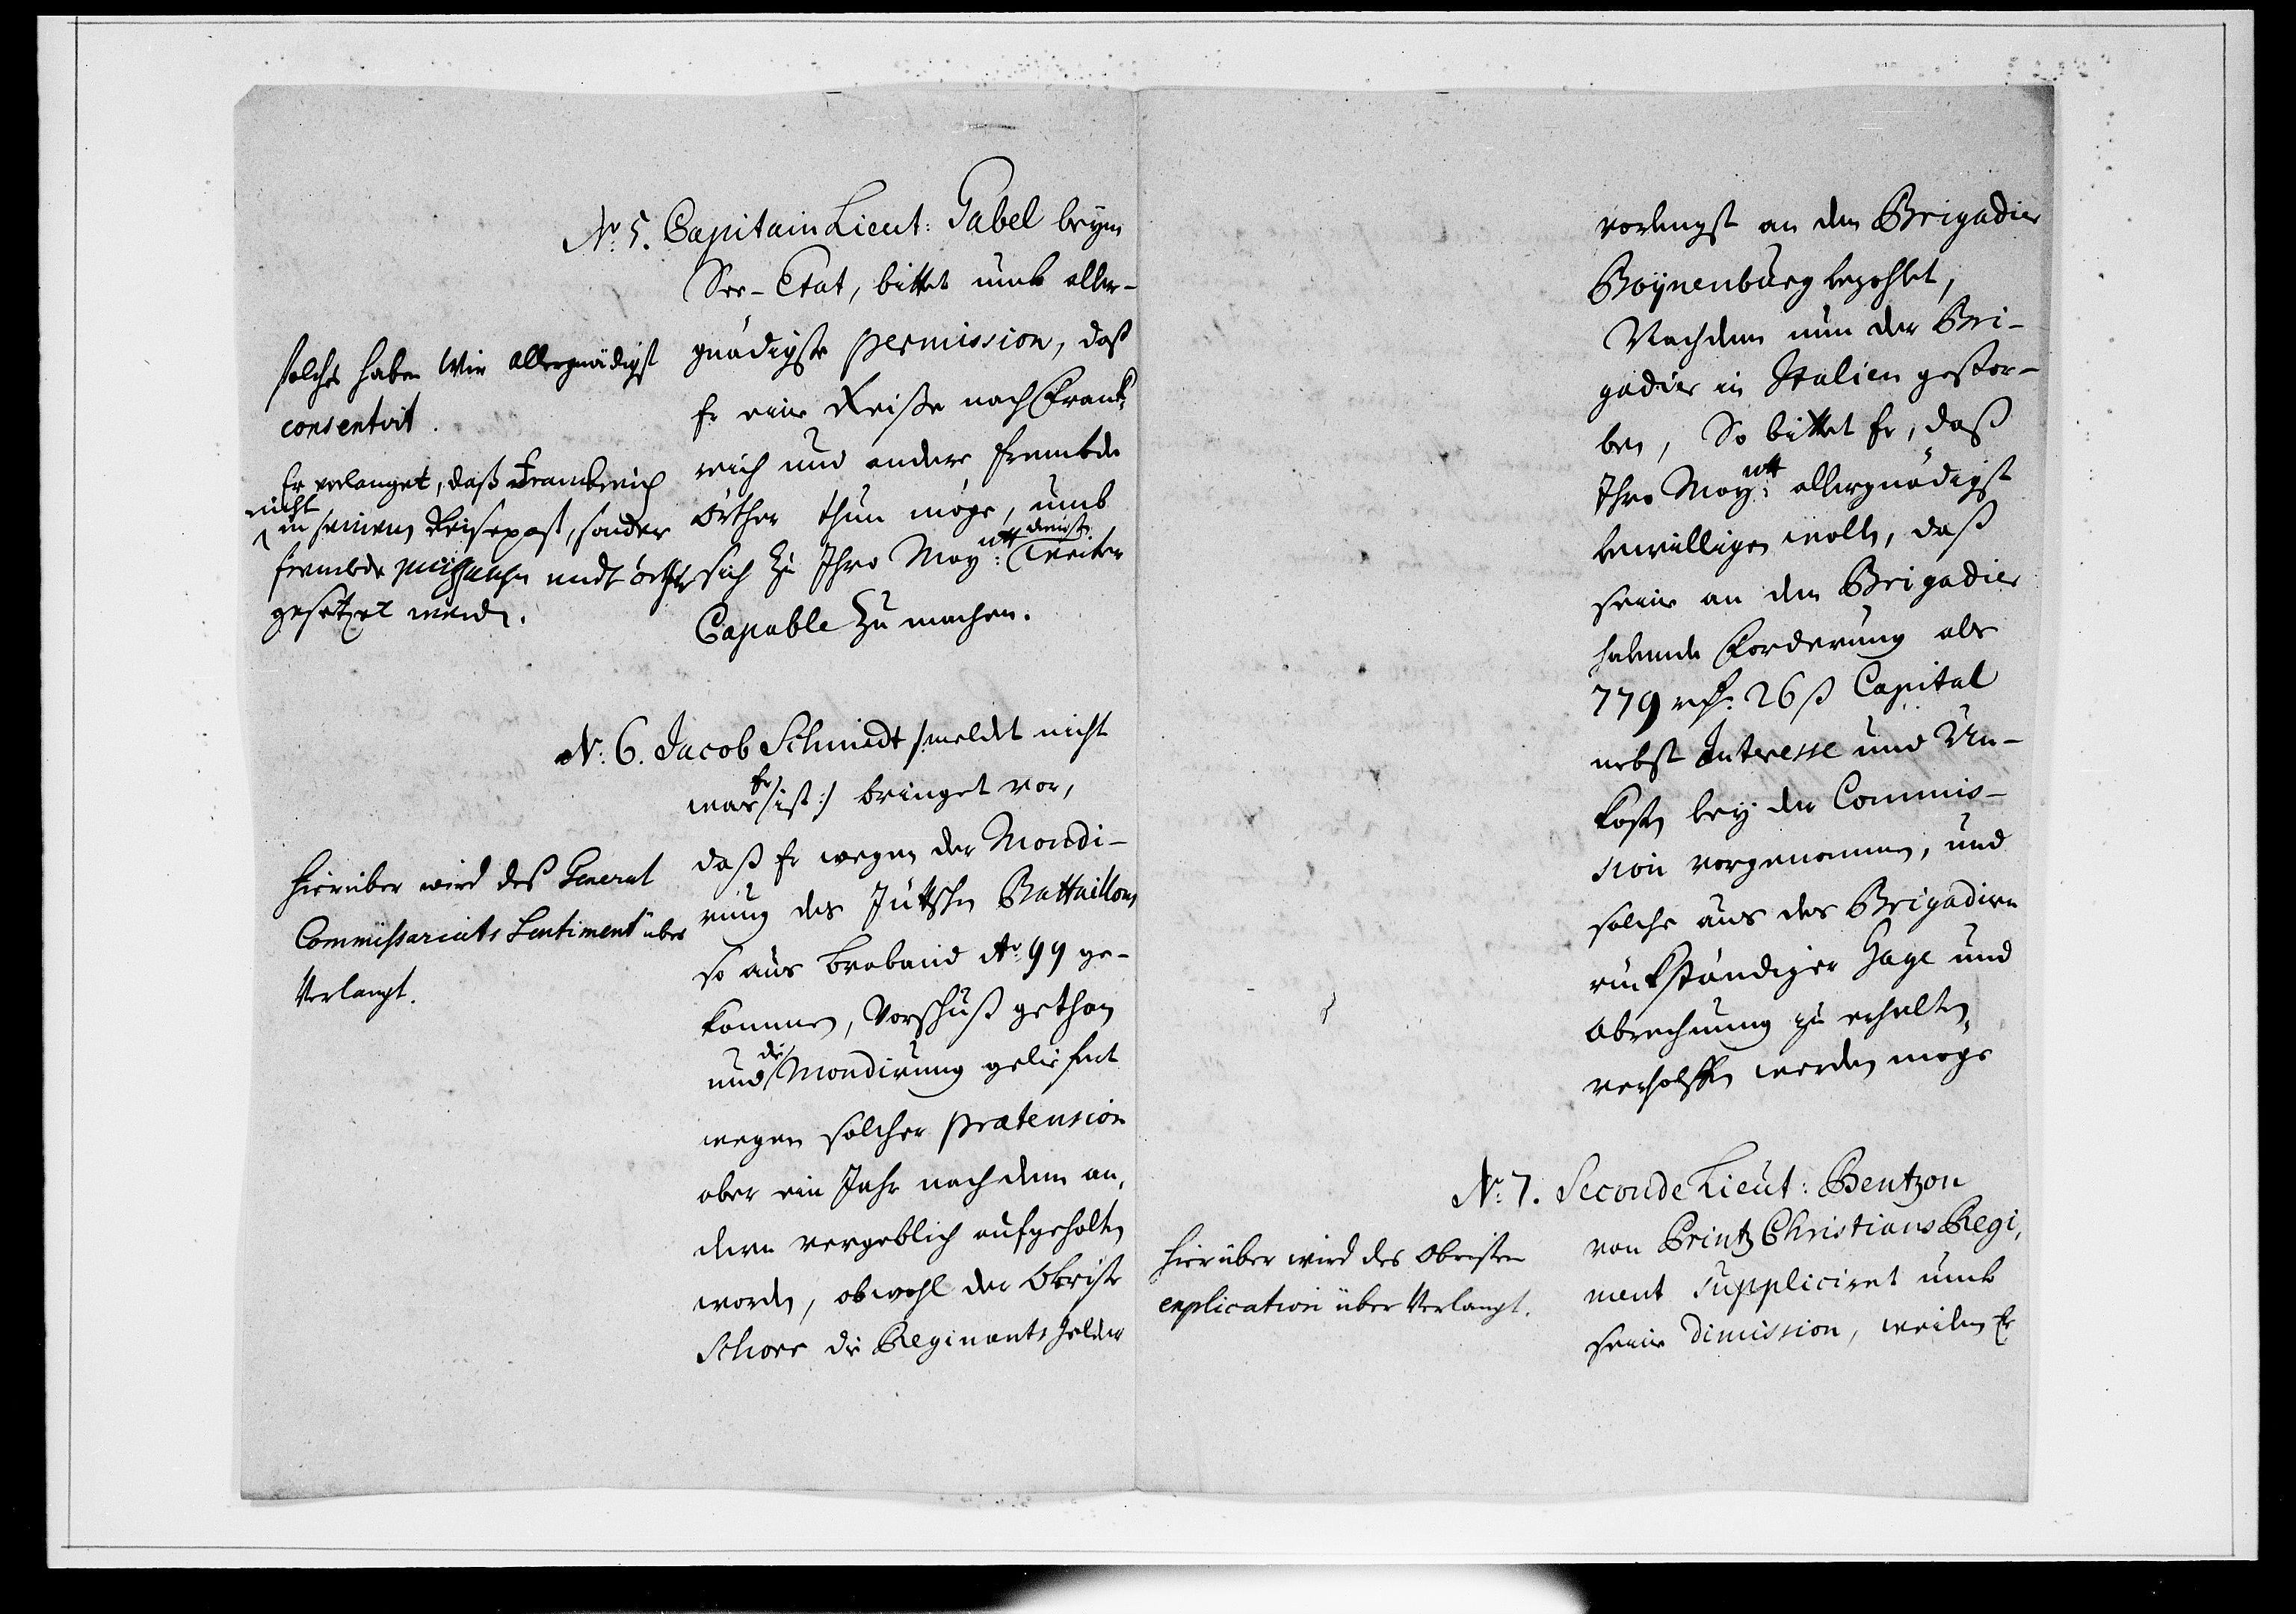 No: 5. Capitain Lieut: Gabel beym
See-Etat, bittet umb aller-
gnädigste permission, daß
Er eine Reiße nach Franck-
reich und andere frembde
örther thun möge, umb
sich zu Ihro May:ntt dienste weiter
Capable zu machen.
solches haben Wir allergnädigst
consentirt.
Er verlanget, daß Franckreich
nicht
in seinem Reisepaß, sonder
frembde undt örther
gesetzet werde.
N: 6. Jacob Schmidt /meldet nicht
was er ist:/ bringet vor,
daß Er wegen der Mondi-
rung des Jüttschen Battaillons
so aus Braband Ao 99 ge-
kommen, Vorschuß gethan
und die Mondirung geliefert
wegen solcher prætension
aber ein Jahr nach dem an-
dern vergeblich aufgehalten
worden, obwohl der Obriste
Schorr die Regiments gelder
Hierüber wird des General
Commissariats Sentiment über
Verlangt.
vorlengst an den Brigadier
Boynenburg bezahlet,
Nachdem nun der Bri-
gadier in Italien gestor-
ben, So bittet Er, daß
Ihro May:ntt allergnädigst
bewilligen wolle, daß
seine an den Brigadier
habende Forderung als
779 rth: 26 ß Capital
nebst Interesse und Un-
kosten bey der Commis-
sion vorgenommen, und
solche aus des Brigadiern
rückständiger Gage und
Abrechnung zu erhalten,
verholffen werden möge
No: 7. Seconde Lieut: Bentzon
von Printz Christians Regi-
ment suppliciret umb
seine Dimission, weilen Er
Hierüber wird des Obristen
explication über Verlangt.